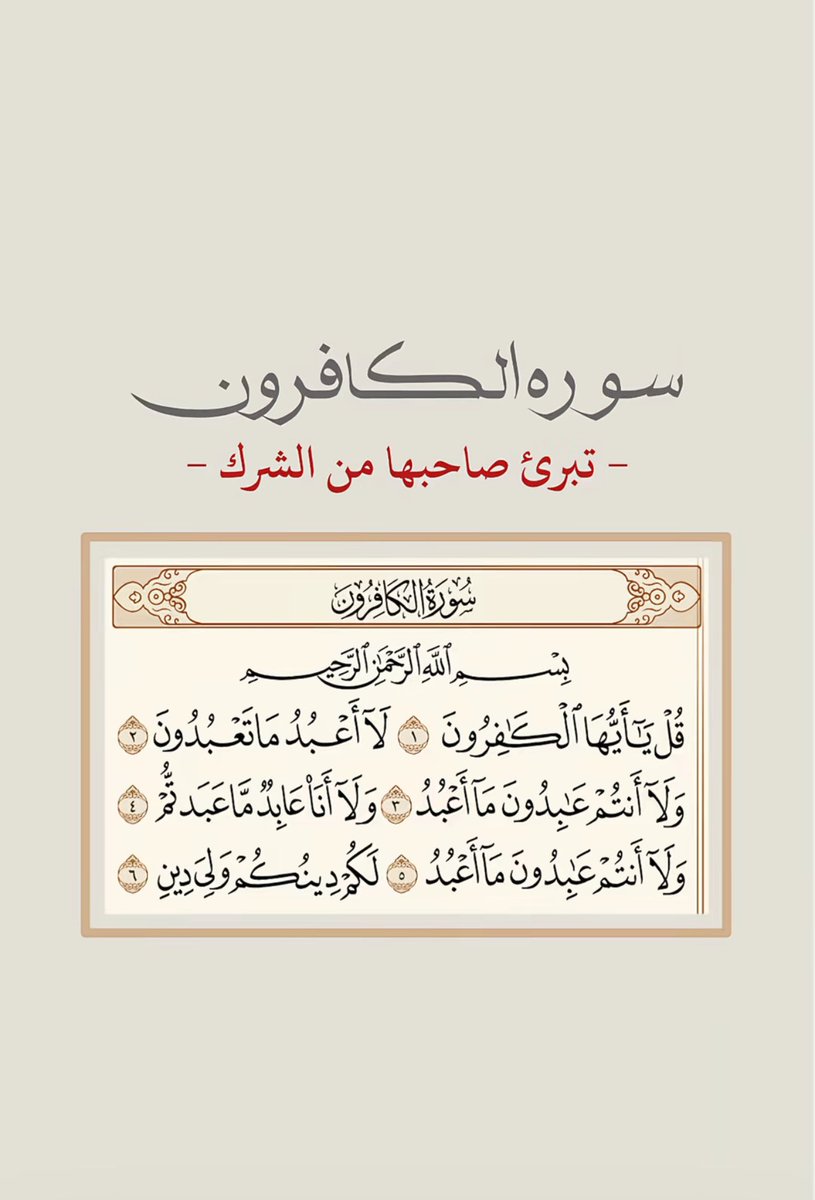 سوره الكافرون
- تبرئ صاحبها من الشرك -
سُورَةُ الكَافِرُونَ
بِسْمِ ٱللَّهِ ٱلرَّحْمَٰنِ ٱلرَّحِيمِ
قُلْ يَٰٓأَيُّهَا ٱلْكَٰفِرُونَ ١ لَآ أَعْبُدُ مَا تَعْبُدُونَ ٢
وَلَآ أَنتُمْ عَٰبِدُونَ مَآ أَعْبُدُ ٣ وَلَآ أَنَا۠ عَابِدٌ مَّا عَبَدتُّمْ ٤
وَلَآ أَنتُمْ عَٰبِدُونَ مَآ أَعْبُدُ ٥ لَكُمْ دِينُكُمْ وَلِىَ دِينِ ٦